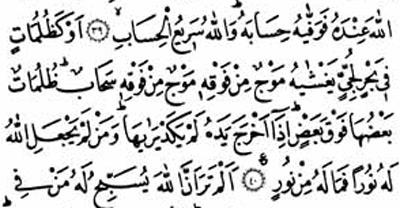 اللهَ عِنْدَهٗ فَوَفّٰىهُ حِسَابَهٗ ؕ وَاللهُ سَرِيْعُ الْحِسَابِ ۙ﴿۳۹﴾ اَوْ كَظُلُمٰتٍ
فِيْ بَحْرٍ لُّجِّيٍّ يَّغْشٰىهُ مَوْجٌ مِّنْ فَوْقِهٖ مَوْجٌ مِّنْ فَوْقِهٖ سَحَابٌ ؕ ظُلُمٰتٌۢ
بَعْضُهَا فَوْقَ بَعْضٍ ؕ اِذَاۤ اَخْرَجَ يَدَهٗ لَمْ يَكَدْ يَرٰىهَا ؕ وَمَنْ لَّمْ يَجْعَلِ اللهُ
لَهٗ نُوْرًا فَمَا لَهٗ مِنْ نُّوْرٍ ﴿۴۰﴾ اَلَمْ تَرَ اَنَّ اللهَ يُسَبِّحُ لَهٗ مَنْ فِي